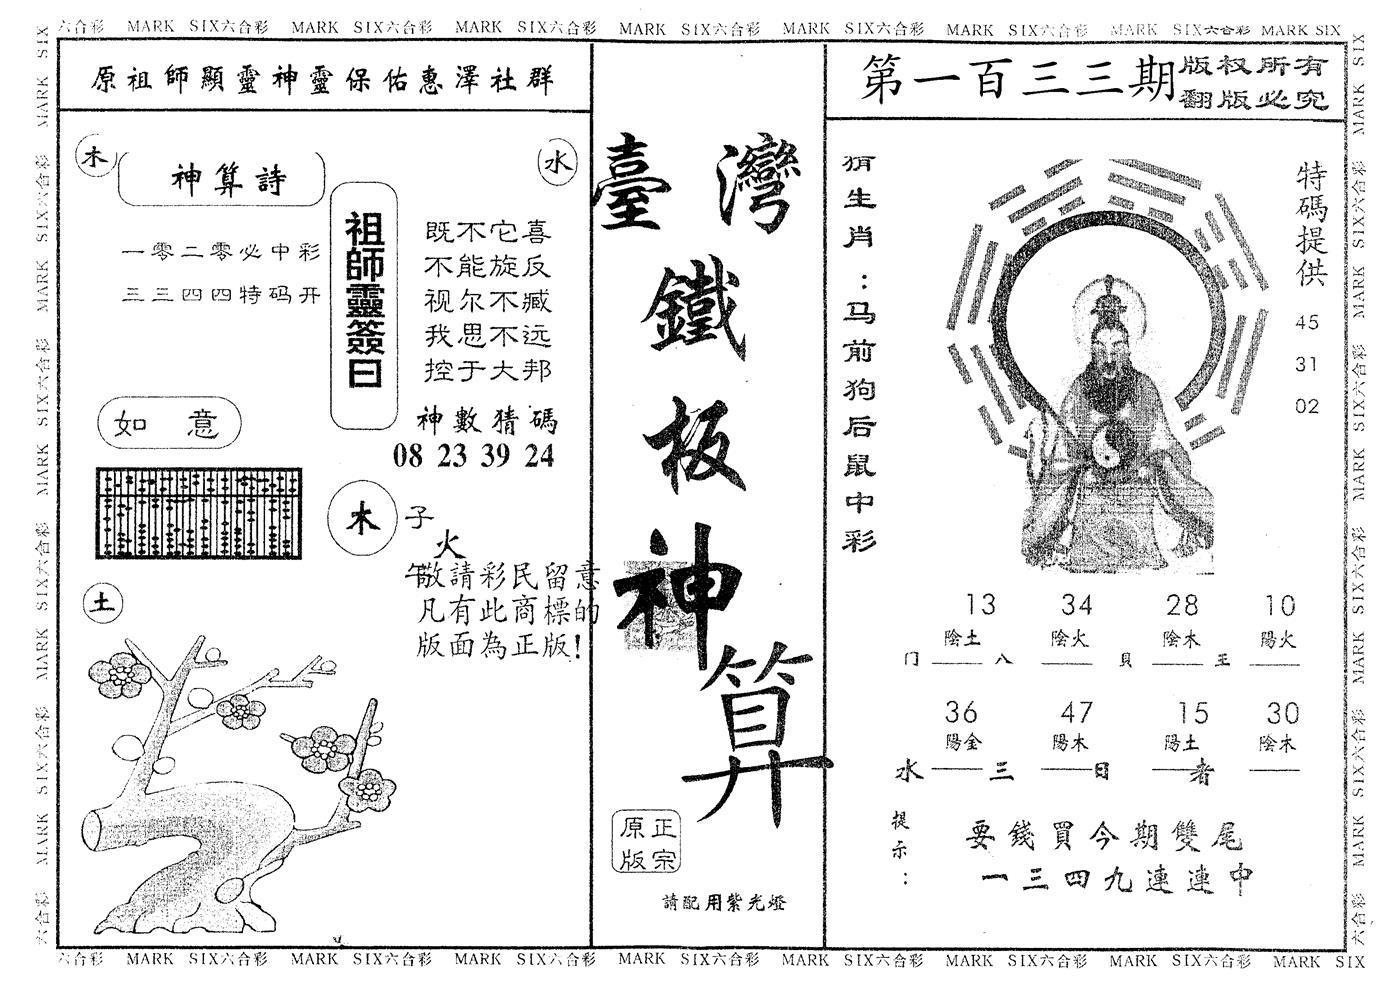 六合彩 MARK SIX六合彩 MARK SIX六合彩 MARK SIX六合彩 MARK SIX六合彩 MARK SIX六合彩 MARK SIX六合彩 MARK SIX六合彩 MARK SIX
原祖師顯靈神靈保佑惠澤社群
木
神算詩
水
一零二零必中彩
三三四四特码开
祖師靈簽曰
既不它喜
不能旋反
视尔不臧
我思不远
控于大邦
神數猜碼
08 23 39 24
如意
木
子
火
午
敬請彩民留意
凡有此商標的
版面為正版!
土
臺灣
鐵
板
神
算
正宗
原版
請配用紫光燈
第一百三三期
版权所有
翻版必究
猜生肖：马前狗后鼠中彩
特碼提供
45
31
02
13 34 28 10
陰土 陰火 陰木 陽火
门 八 貝 王
36 47 15 30
陽金 陽木 陽土 陰木
水 三 日 者
提示：
要錢買今期雙尾
一三四九連連中
六合彩 MARK SIX六合彩 MARK SIX六合彩 MARK SIX六合彩 MARK SIX六合彩 MARK SIX六合彩 MARK SIX六合彩 MARK SIX六合彩 MARK SIX